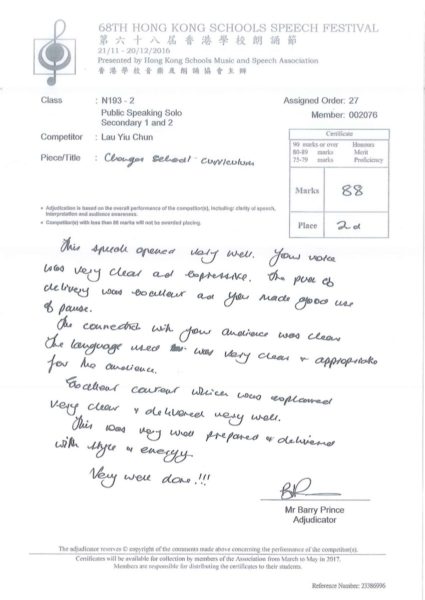 68TH HONG KONG SCHOOLS SPEECH FESTIVAL
第六十八屆香港學校朗誦節
21/11 - 20/12/2016
Presented by Hong Kong Schools Music and Speech Association
香港學校音樂及朗誦協會主辦
Class : N193 - 2
Public Speaking Solo
Secondary 1 and 2
Assigned Order: 27
Member: 002076
Competitor : Lau Yiu Chun
Piece/Title : Changes School Curriculum
Certificate
90 marks or over Honours
80-89 marks Merit
75-79 marks Proficiency
Marks 88
Place 2nd
Adjudication is based on the overall performance of the competitor(s), including: clarity of speech, interpretation and audience awareness.
Competitor(s) with less than 80 marks will not be awarded placing.
This speech opened very well. Your voice
was very clear and expressive. The pace of
delivery was excellent and you made good use
of pause.
The connection with your audience was clear
The language used was very clear & appropriate
for the audience.
Excellent content which was explained
very clear & delivered very well.
This was very well prepared & delivered
with style & energy.
Very well done!!!
Mr Barry Prince
Adjudicator
The adjudicator reserves © copyright of the comments made above concerning the performance of the competitor(s).
Certificates will be available for collection by members of the Association from March to May in 2017.
Members are responsible for distributing the certificates to their students.
Reference Number: 23386996